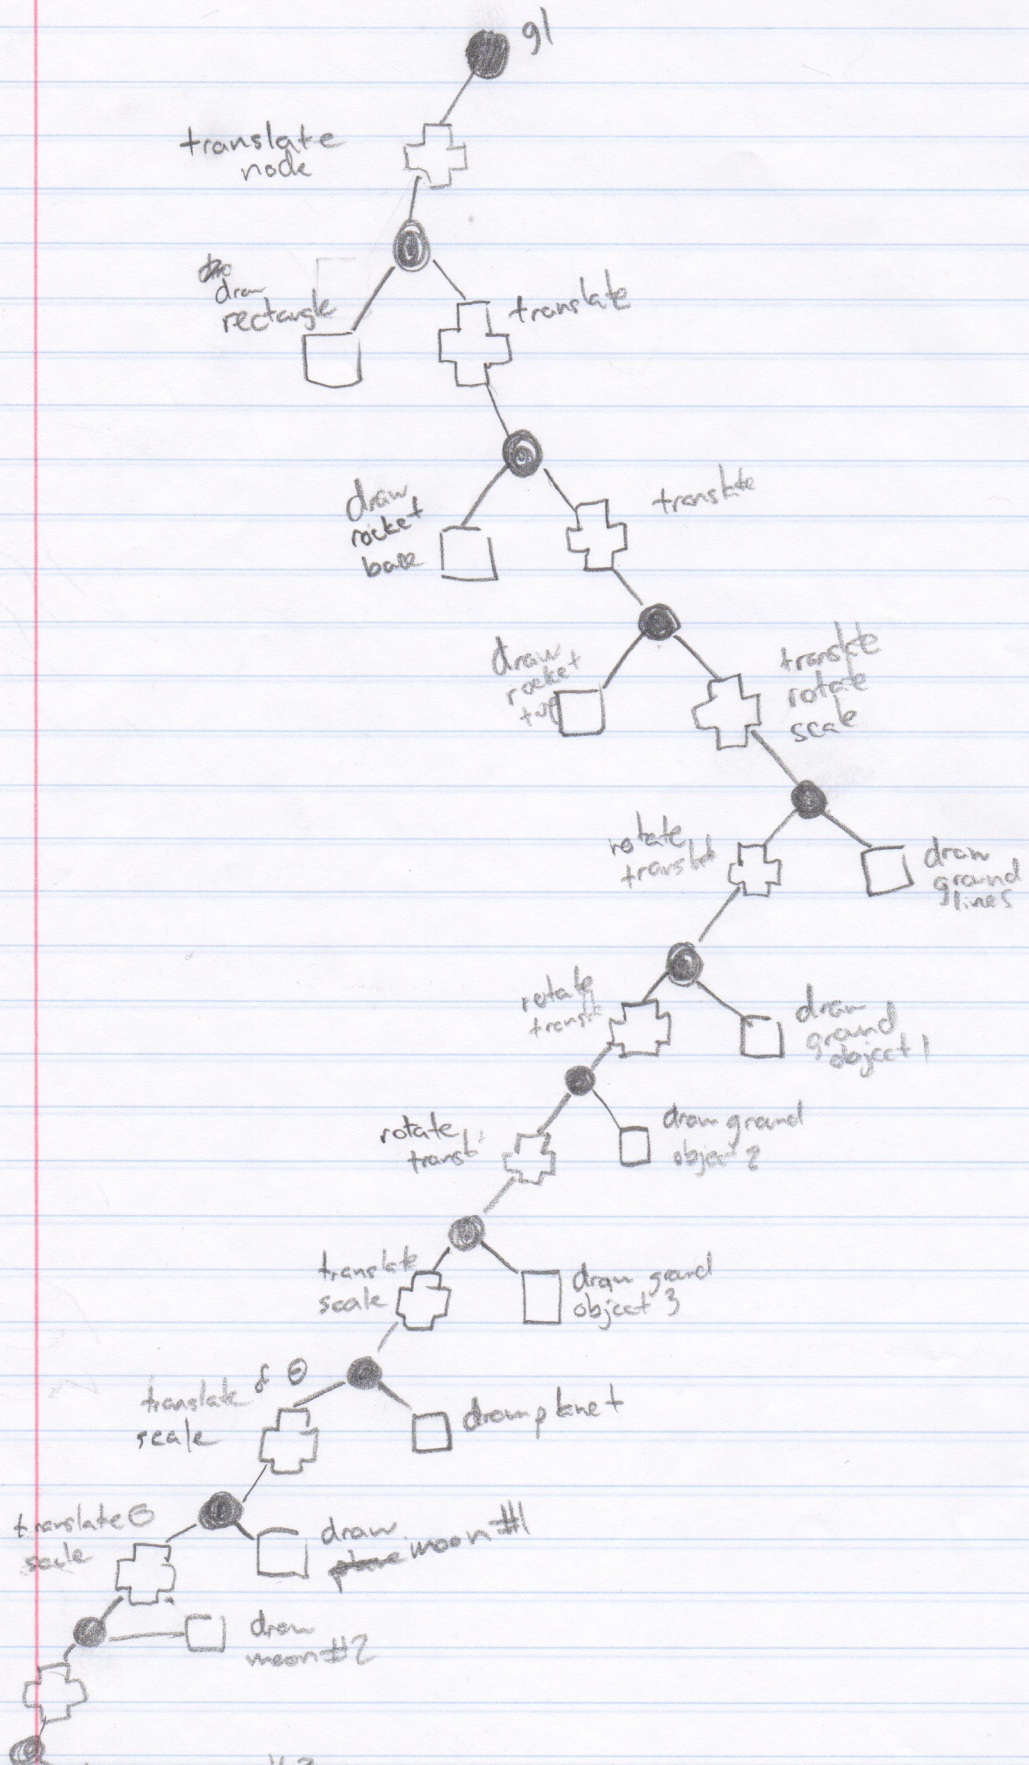 gl
translate
node
draw
rectangle
translate
draw
rocket
base
translate
draw
rocket
top
translate
rotate
scale
rotate
translate
draw
ground
lines
rotate
transt
draw
ground
object 1
rotate
transt
draw ground
object 2
translate
scale
draw ground
object 3
translate & θ
scale
draw planet
translate θ
scale
draw
moon #1
draw
moon #2